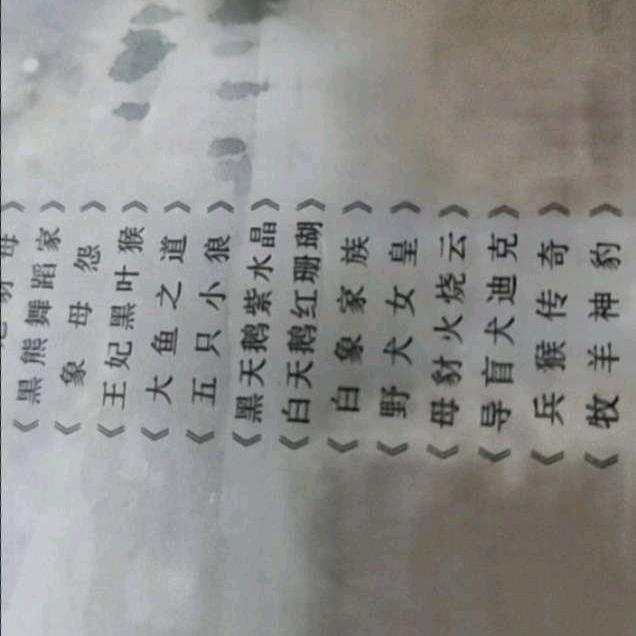 《黑熊舞蹈家》
《象母怨》
《王妃黑叶猴》
《大鱼之道》
《五只小狼》
《黑天鹅紫水晶》
《白天鹅红珊瑚》
《白象家族》
《野犬女皇》
《母豺火烧云》
《导盲犬迪克》
《兵猴传奇》
《牧羊神豹》